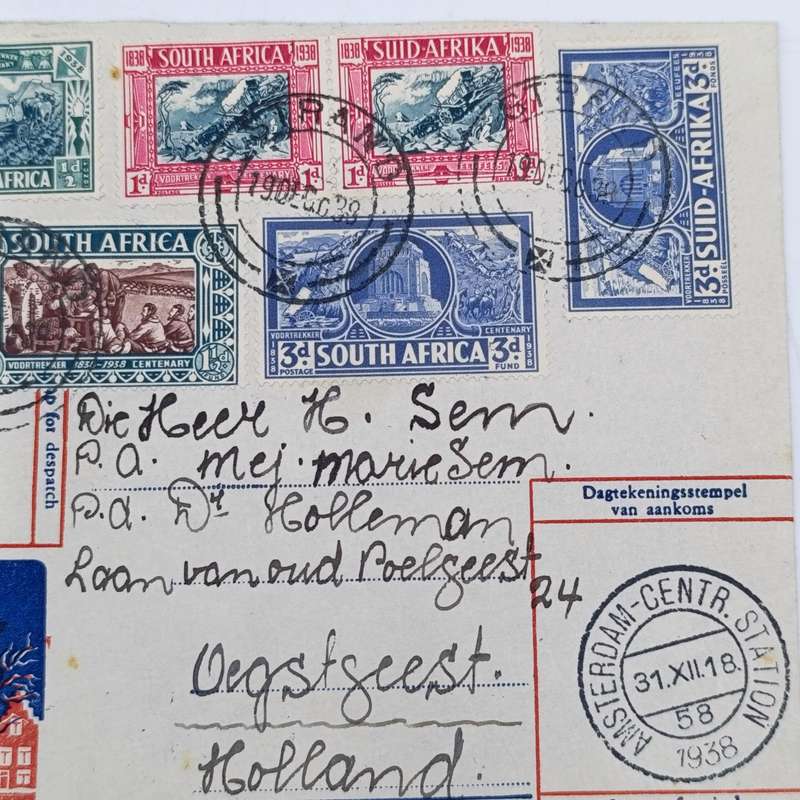 1938
½d
AFRICA
1838 SOUTH AFRICA 1938
1d VOORTREKKER CENTENARY 1d
POSTAGE
1838 SUID-AFRIKA 1938
1d 1d
POSSEEL
EEUFEES
FONDS
3d SUID-AFRIKA 3d
VOORTREKKER
1838 1938
POSSEEL
STRAND
19 DEC 38
STRAND
19 DEC 38
SOUTH AFRICA
VOORTREKKER 1838-1938 CENTENARY
1½d
VOORTREKKER CENTENARY
1838 1938
3d SOUTH AFRICA 3d
POSTAGE FUND
for despatch
Die Heer H. Sem.
P.a. Mej. Marie Sem.
P.a. Dr Holleman
Laan van oud Poelgeest
24
Oegstgeest.
Holland.
Dagtekeningsstempel
van aankoms
AMSTERDAM-CENTR. STATION
31.XII.18.
58
1938